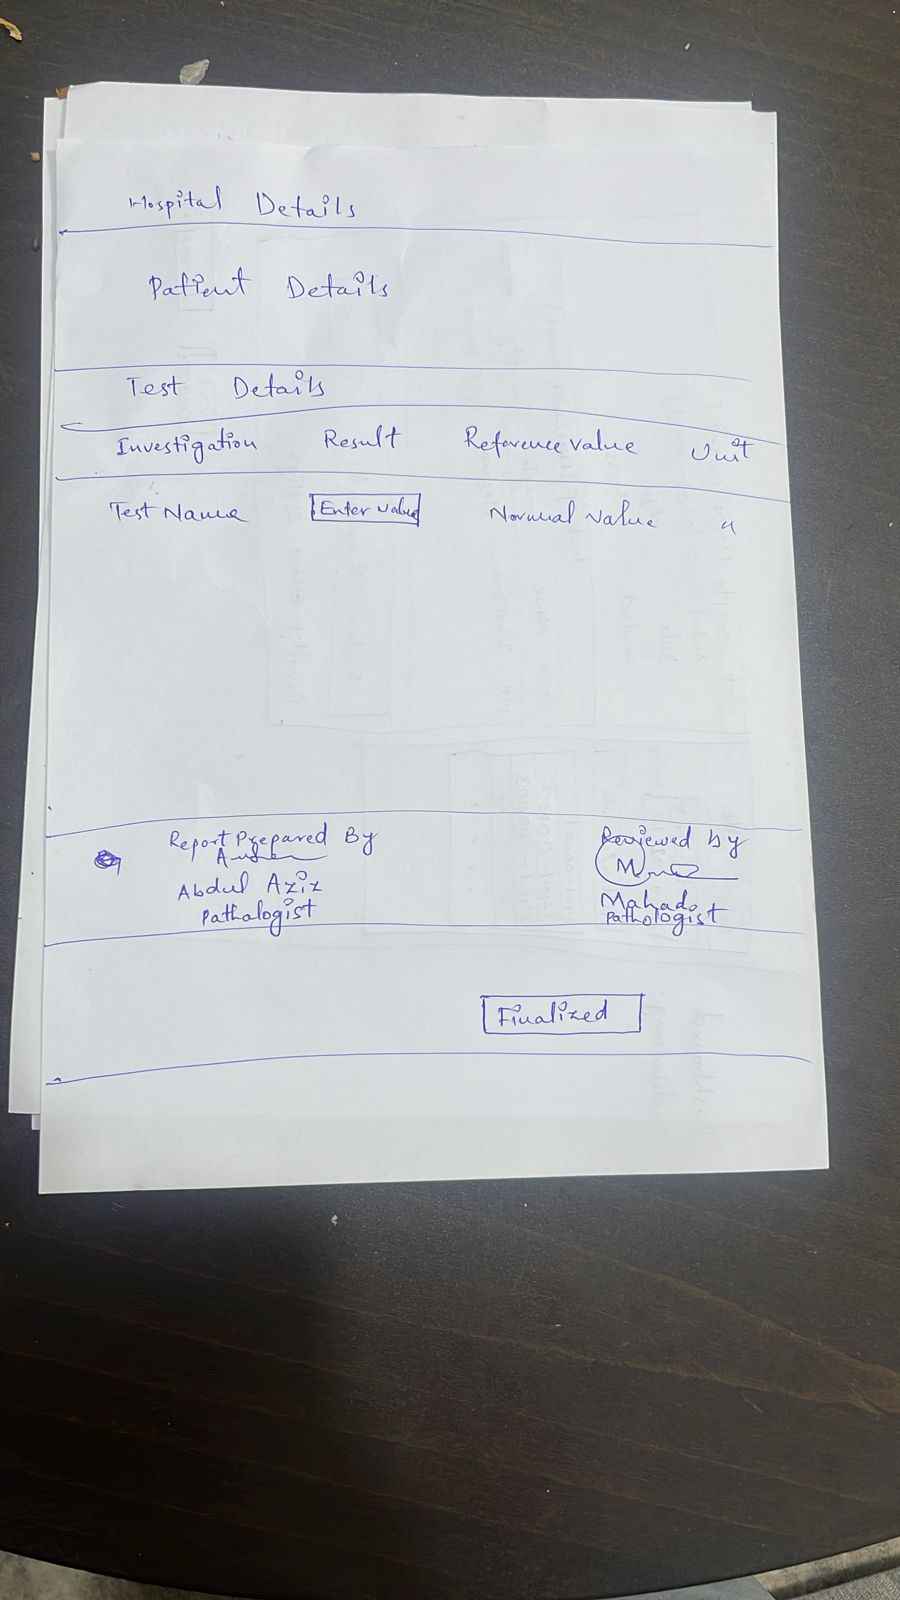 Hospital Details
Patient Details
Test Details
Investigation Result Reference Value Unit
Test Name Enter value Normal Value "
Report Prepared By Reviewed by
Abdul Aziz Mahado
Pathalogist Pathologist
Finalized